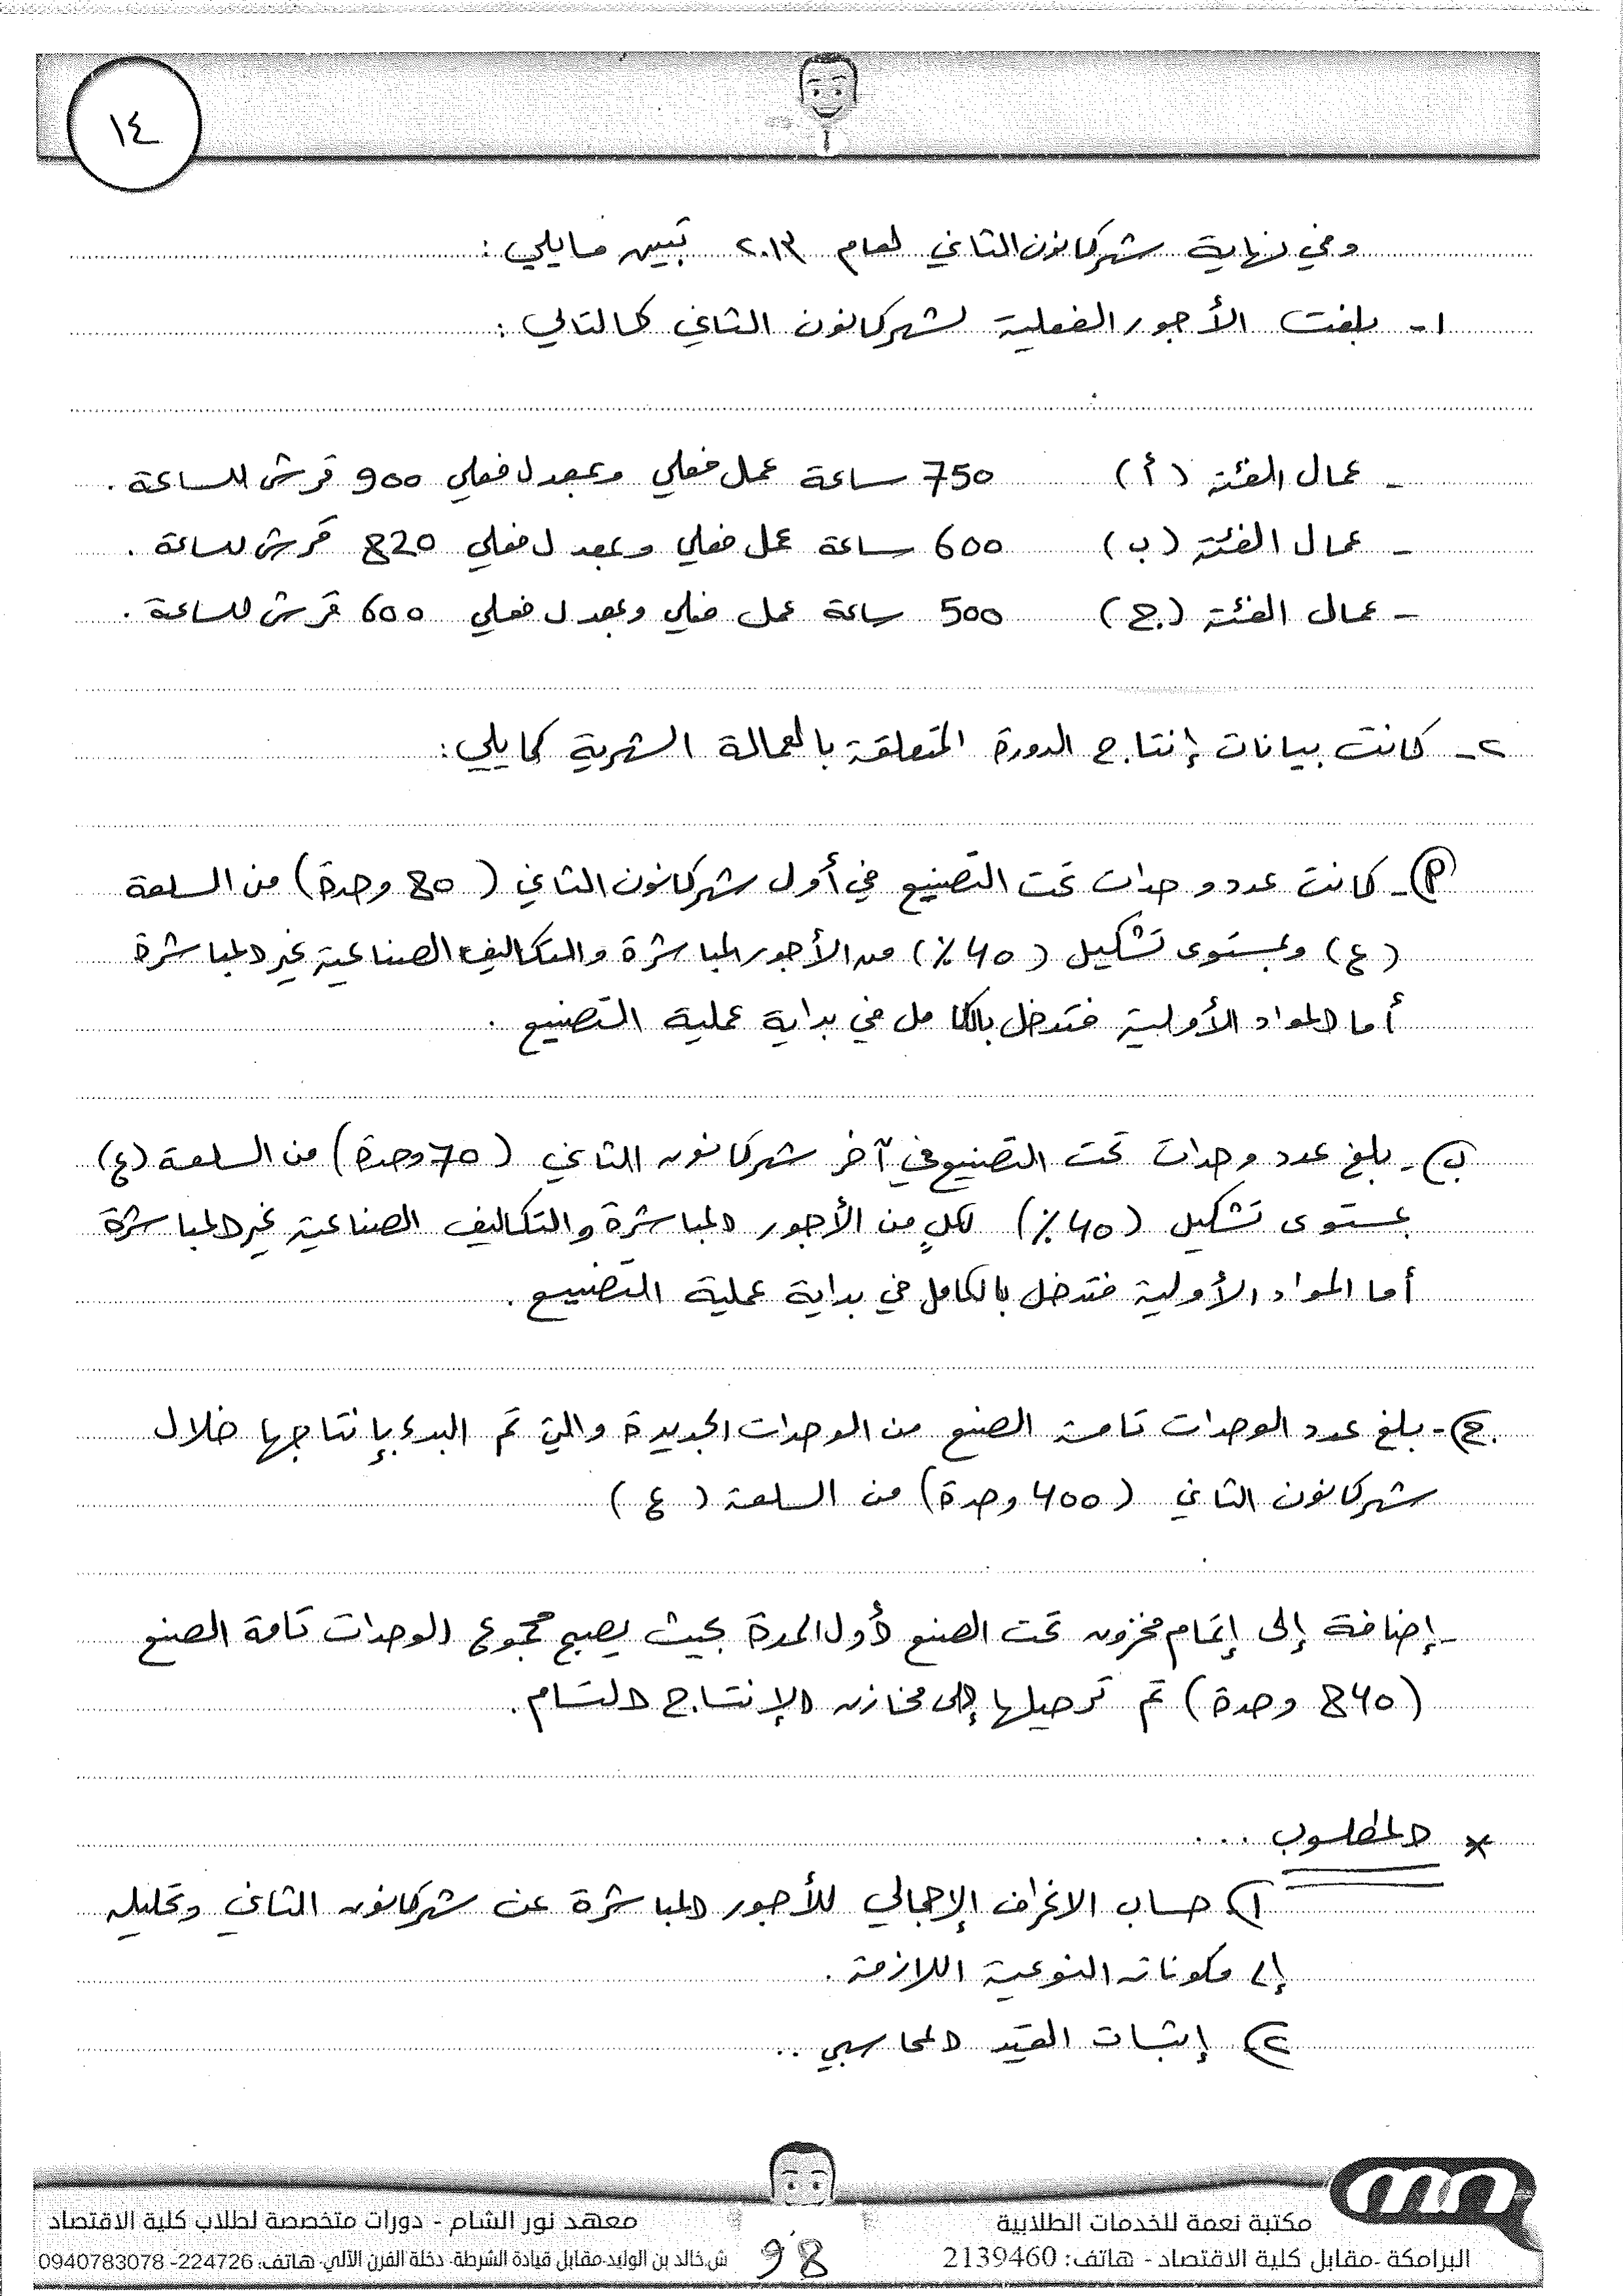 ١٤
وفي نهاية شهر كانون الثاني لعام ٢٠١٣ تبين مايلي :
١- بلغت الأجور الفعلية لشهر كانون الثاني كالتالي :
- عمال الفئة (أ) 750 ساعة عمل فعلي وبمعدل فعلي 900 قرش للساعة .
- عمال الفئة (ب) 600 ساعة عمل فعلي وبمعدل فعلي 820 قرش للساعة .
- عمال الفئة (ج) 500 ساعة عمل فعلي وبمعدل فعلي 600 قرش للساعة .
٢- كانت بيانات إنتاج الدورة المتعلقة بالعمالة الشهرية كمايلي :
أ- كانت عدد وحدات تحت التصنيع في أول شهر كانون الثاني (80 وحدة) من السلعة
(ع) وبمستوى تشكيل (40 %) من الأجور المباشرة والتكاليف الصناعية غير المباشرة
أما المواد الأولية فتدخل بالكامل في بداية عملية التصنيع .
ب- بلغ عدد وحدات تحت التصنيع في آخر شهر كانون الثاني (70 وحدة) من السلعة (ع)
بمستوى تشكيل (40 %) لكلٍ من الأجور المباشرة والتكاليف الصناعية غير المباشرة
أما المواد الأولية فتدخل بالكامل في بداية عملية التصنيع .
ج- بلغ عدد الوحدات تامة الصنع من الوحدات الجديدة والتي تم البدء بإنتاجها خلال
شهر كانون الثاني (400 وحدة) من السلعة (ع)
- إضافة إلى إتمام مخزون تحت الصنع أول المدة بحيث يصبح مجموع الوحدات تامة الصنع
(840 وحدة) تم ترحيلها إلى مخازن الإنتاج التام .
* المطلوب ...
١) حساب الانحراف الإجمالي للأجور المباشرة عن شهر كانون الثاني وتحليله
إلى مكوناته النوعية اللازمة .
٢) إثبات القيد المحاسبي ..
مكتبة نعمة للخدمات الطلابية
البرامكة -مقابل كلية الاقتصاد - هاتف: 2139460
98
معهد نور الشام - دورات متخصصة لطلاب كلية الاقتصاد
ش.خالد بن الوليد-مقابل قيادة الشرطة- دخلة الفرن الآلي- هاتف: 224726- 0940783078